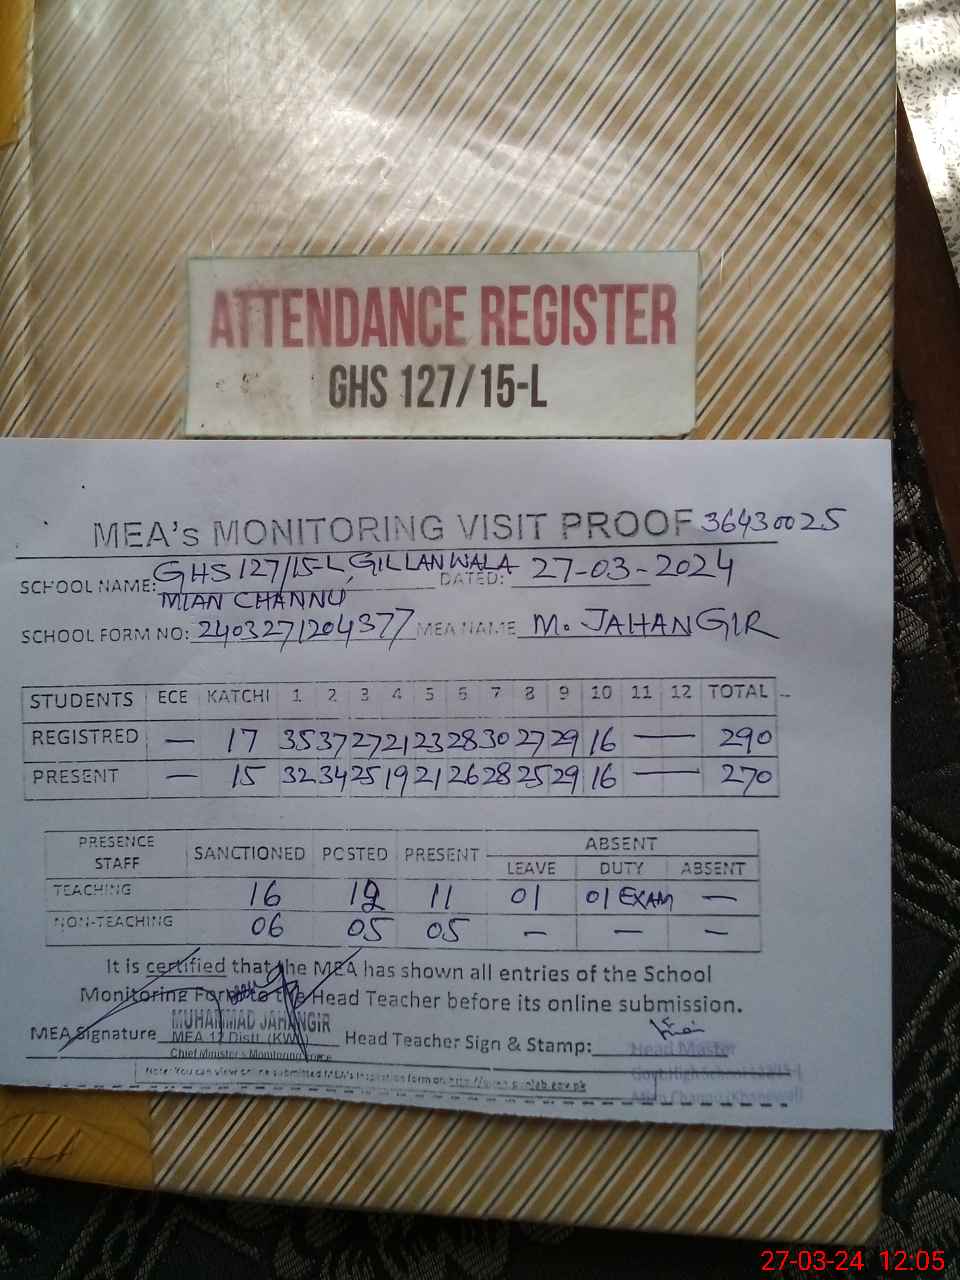 ATTENDANCE REGISTER
GHS 127/15-L
MEA's MONITORING VISIT PROOF 36430025
SCHOOL NAME: GHS 127/15-L, GILLANWALA DATED: 27-03-2024
MIAN CHANNU
SCHOOL FORM NO: 2403271204377 MEA NAME M. JAHANGIR
STUDENTS ECE KATCHI 1 2 3 4 5 6 7 8 9 10 11 12 TOTAL
REGISTRED — 17 35 37 27 21 23 28 30 27 29 16 — 290
PRESENT — 15 32 34 25 19 21 26 28 25 29 16 — 270
PRESENCE STAFF SANCTIONED POSTED PRESENT ABSENT
LEAVE DUTY ABSENT
TEACHING 16 12 11 01 01 EXAM —
NON-TEACHING 06 05 05 — — —
It is certified that the MEA has shown all entries of the School
Monitoring Form to the Head Teacher before its online submission.
MUHAMMAD JAHANGIR
MEA Signature MEA 12 Distt. (KWL) Head Teacher Sign & Stamp:
Chief Minister's Monitoring Force
Head Master
Govt. High School 127/15-L
Mian Channu (Khanewal)
Note: You can view online submitted MEA's Inspection form on http://open.punjab.gov.pk
27-03-24 12:05